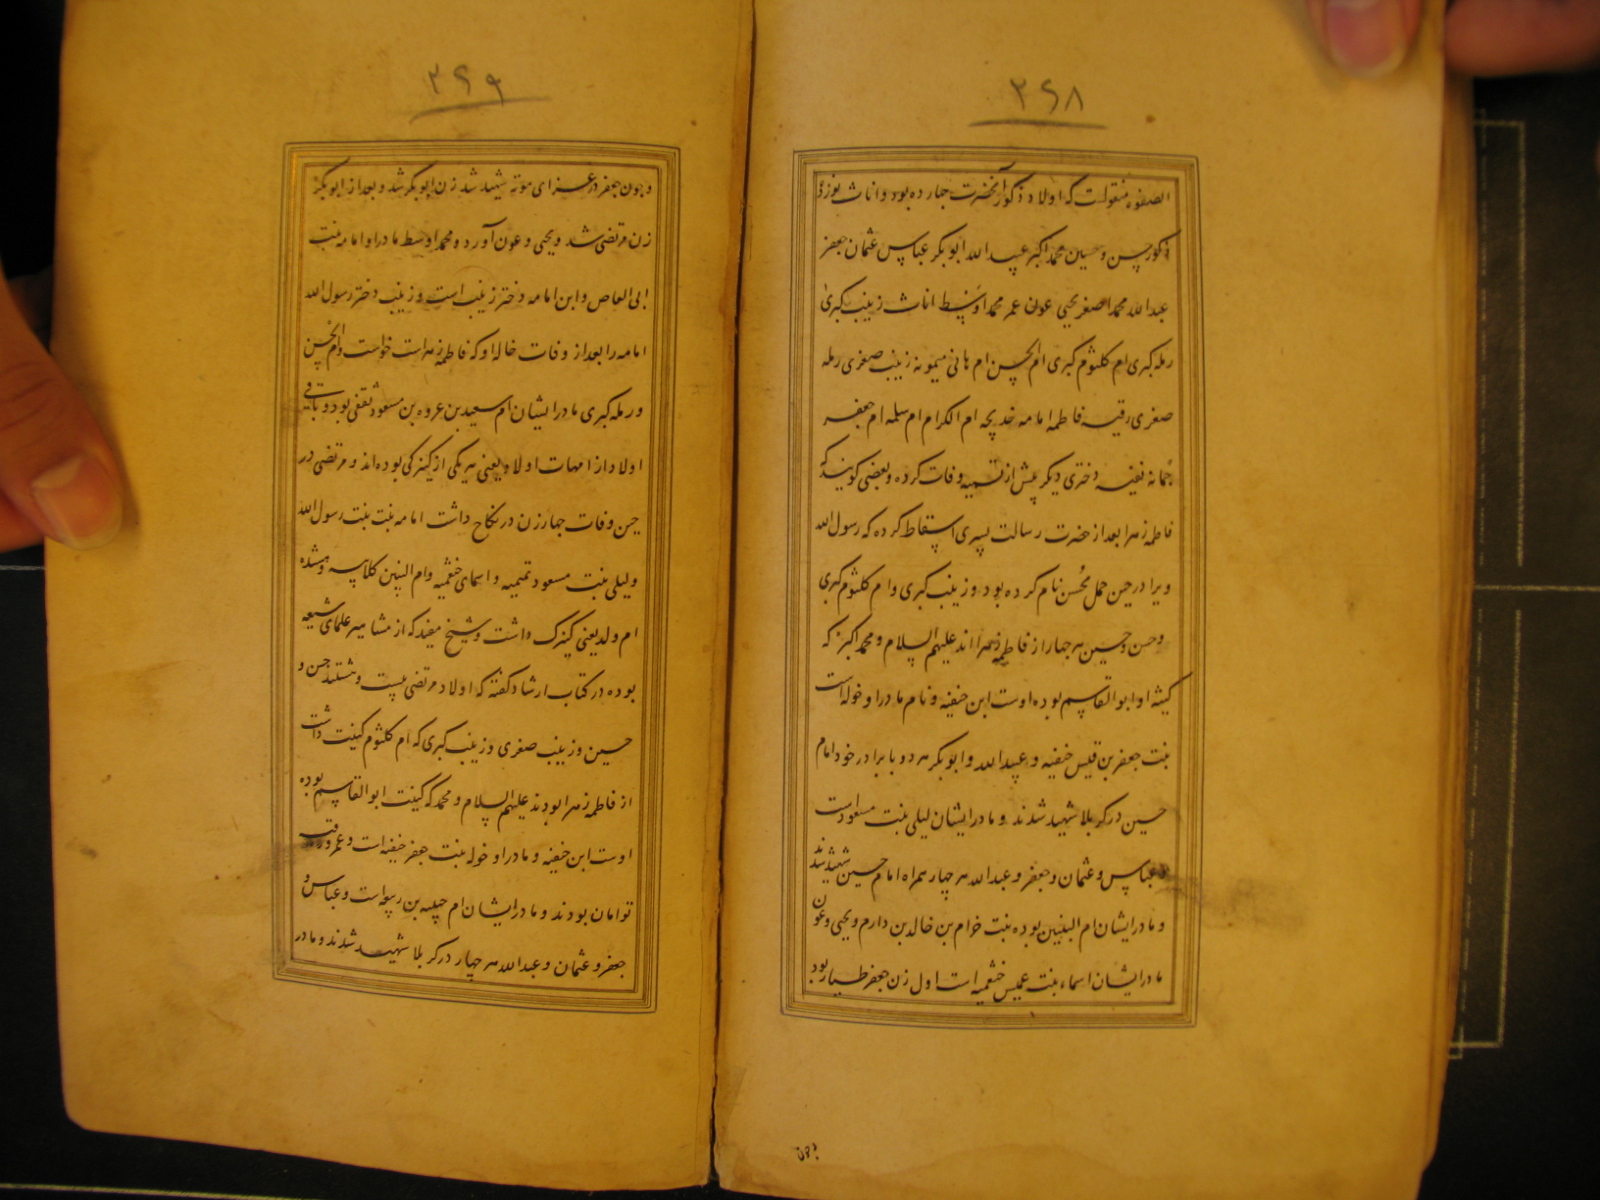 ۲۶۸
الصفوه منقولست که اولاد ذکور آنحضرت چهارده بود و اناث نوزده
ذکور حسن و حسین محمد اکبر عبیدالله ابوبکر عباس عثمان جعفر
عبدالله محمد اصغر یحیی عون عمر محمد اوسط اناث زینب کبری
رمله کبری ام کلثوم کبری ام الحسن ام هانی میمونه زینب صغری رمله
صغری رقیه فاطمه امامه خدیجه ام الکرام ام سلمه ام جعفر
جمانه نفیسه دختری دیگر پیش از تسمیه وفات کرده و بعضی گویند که
فاطمه زهرا بعد از حضرت رسالت پسری اسقاط کرده که رسول الله
ویرا در حین حمل محسن نام کرده بود و زینب کبری و ام کلثوم کبری
و حسن و حسین هر چهار از فاطمه زهرا اند علیهم السلام و محمد اکبر که
کنیة او ابوالقاسم بوده اوست ابن حنفیه و نام مادر او خوله است
بنت جعفر بن قیس حنفیه و عبیدالله و ابوبکر هر دو با برادر خود امام
حسین در کربلا شهید شدند و مادر ایشان لیلی بنت مسعود است
و عباس و عثمان و جعفر و عبدالله هر چهار همراه امام حسین شهید شدند
و مادر ایشان ام البنین بوده بنت خرام بن خالد بن دارم و یحیی و عون
مادر ایشان اسماء بنت عمیس خثعمیه است اول زن جعفر طیار بود
و چون
۲۶۹
و چون جعفر در غزای موته شهید شد زن ابوبکر شد و بعد از ابوبکر
زن مرتضی شد و یحیی و عون آورد و محمد اوسط مادر او امامه بنت
ابی العاص و ابن امامه دختر زینب است و زینب دختر رسول الله
امامه را بعد از وفات خاله او که فاطمه زهراست خواست و ام الحسن
و رمله کبری مادر ایشان ام سعید بن عروه بن مسعود ثقفی بود و باقی
اولاد از امهات اولاد یعنی هر یکی از کنیزکی بوده اند و مرتضی در
حین وفات چهار زن در نکاح داشت امامه بنت بنت رسول الله
و لیلی بنت مسعود تمیمیه و اسمای خثعمیه و ام البنین کلابیه و هشده
ام ولد یعنی کنیزک داشت و شیخ مفید که از مشاهیر علمای شیعه
بوده در کتاب ارشاد گفته که اولاد مرتضی بیست و هشتند حسن و
حسین و زینب صغری و زینب کبری که ام کلثوم کنیت داشت
از فاطمه زهرا بودند علیهم السلام و محمد که کنیت ابوالقاسم بوده
اوست ابن حنفیه و مادر او خوله بنت جعفر حنفیه است و عمر و رقیه
توامان بودند و مادر ایشان ام حبیبه بن ربیعه است و عباس و
جعفر و عثمان و عبدالله هر چهار در کربلا شهید شدند و مادر